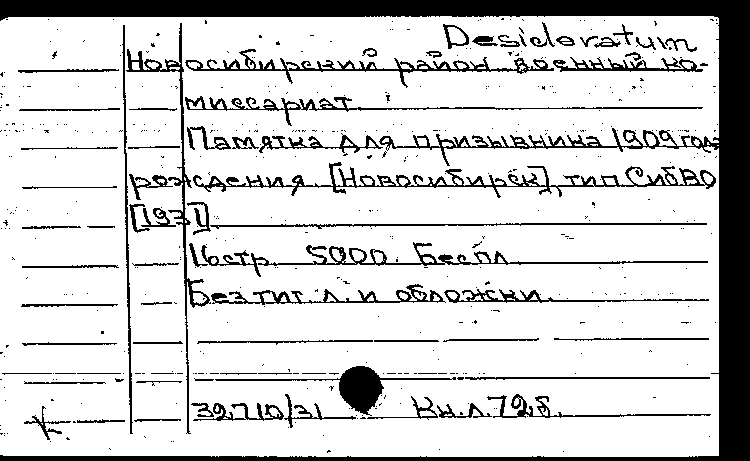 Desideratum
Новосибирский район. военный ко-
миссариат.
Памятка для призывника 1909 года
рождения. [Новосибирск], тип СибВО
[1931]
16стр. 5000. Беспл
Без тит. л. и обложки.
32,710/31 Кн.л.72б.